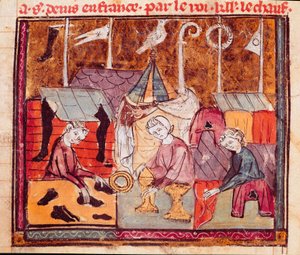 a .s'. denis en france . par le roi . kll'. le chauf.